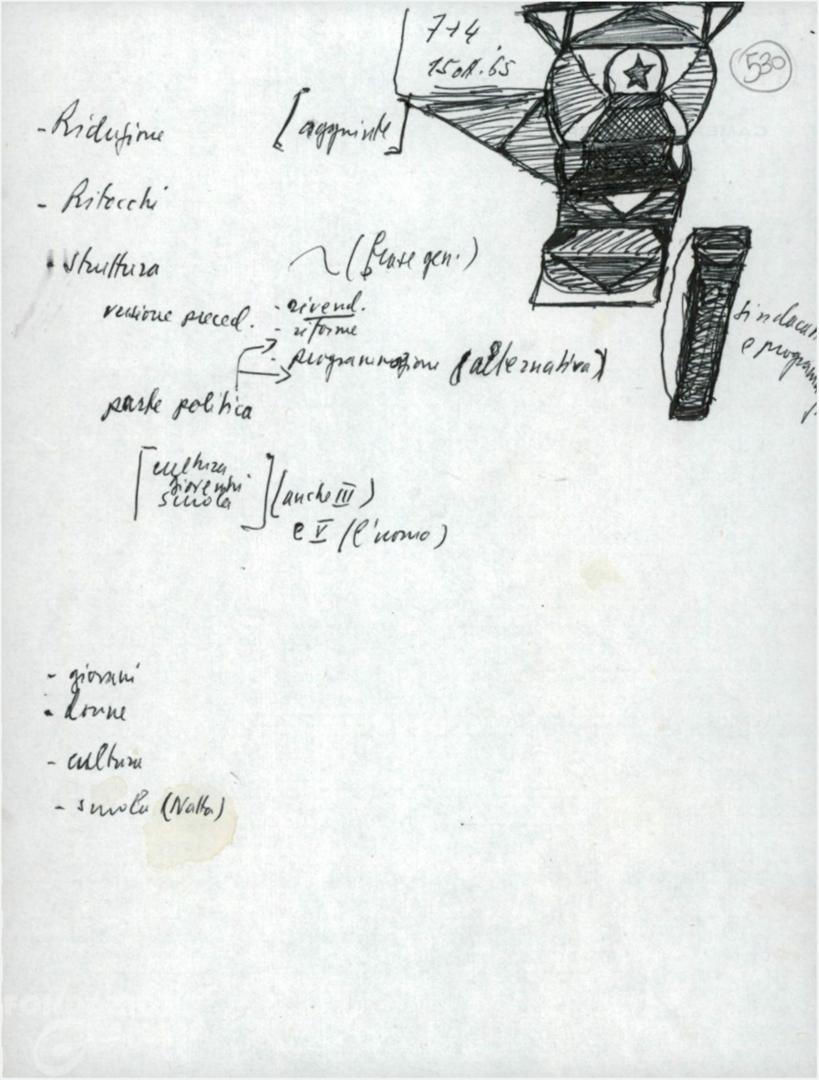 7+4
15 ott. 65
530
- Riduzione [aggiunte]
- Ritocchi
- struttura (frase gen.)
versione preced. - rivend.
- riforme
- programmazione (alternativa)
sindacati
e program
parte politica
[cultura
gioventù
scuola] (anche III)
e V (l'uomo)
- giovani
- donne
- cultura
- scuola (Natta)